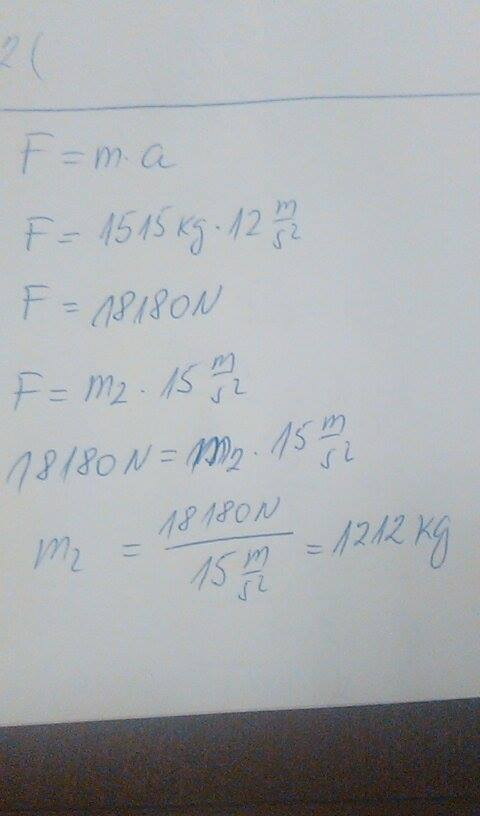 2(
F = m · a
F = 1515 kg · 12 m/s²
F = 18180N
F = m₂ · 15 m/s²
18180N = m₂ · 15 m/s²
m₂ = 18180N / 15 m/s² = 1212 kg